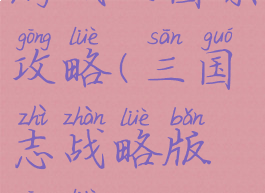 gōng lüè sān guó
攻略(三国
zhì zhàn lüè bǎn
志战略版